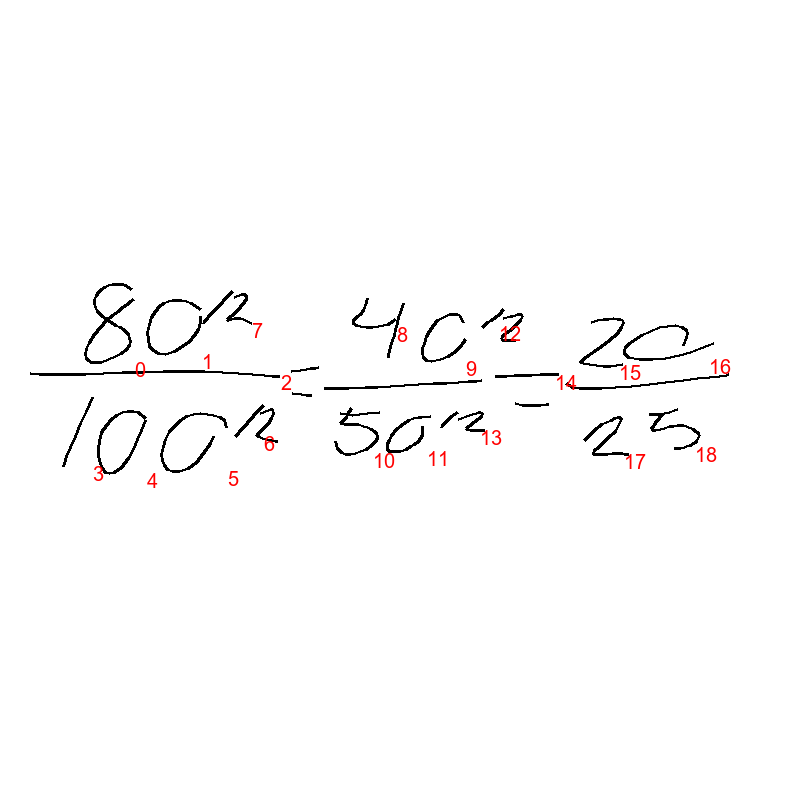 80/2 / 100/2 = 40/2 / 50/2 = 20 / 25
0 1 2 3 4 5 6 7 8 9 10 11 12 13 14 15 16 17 18